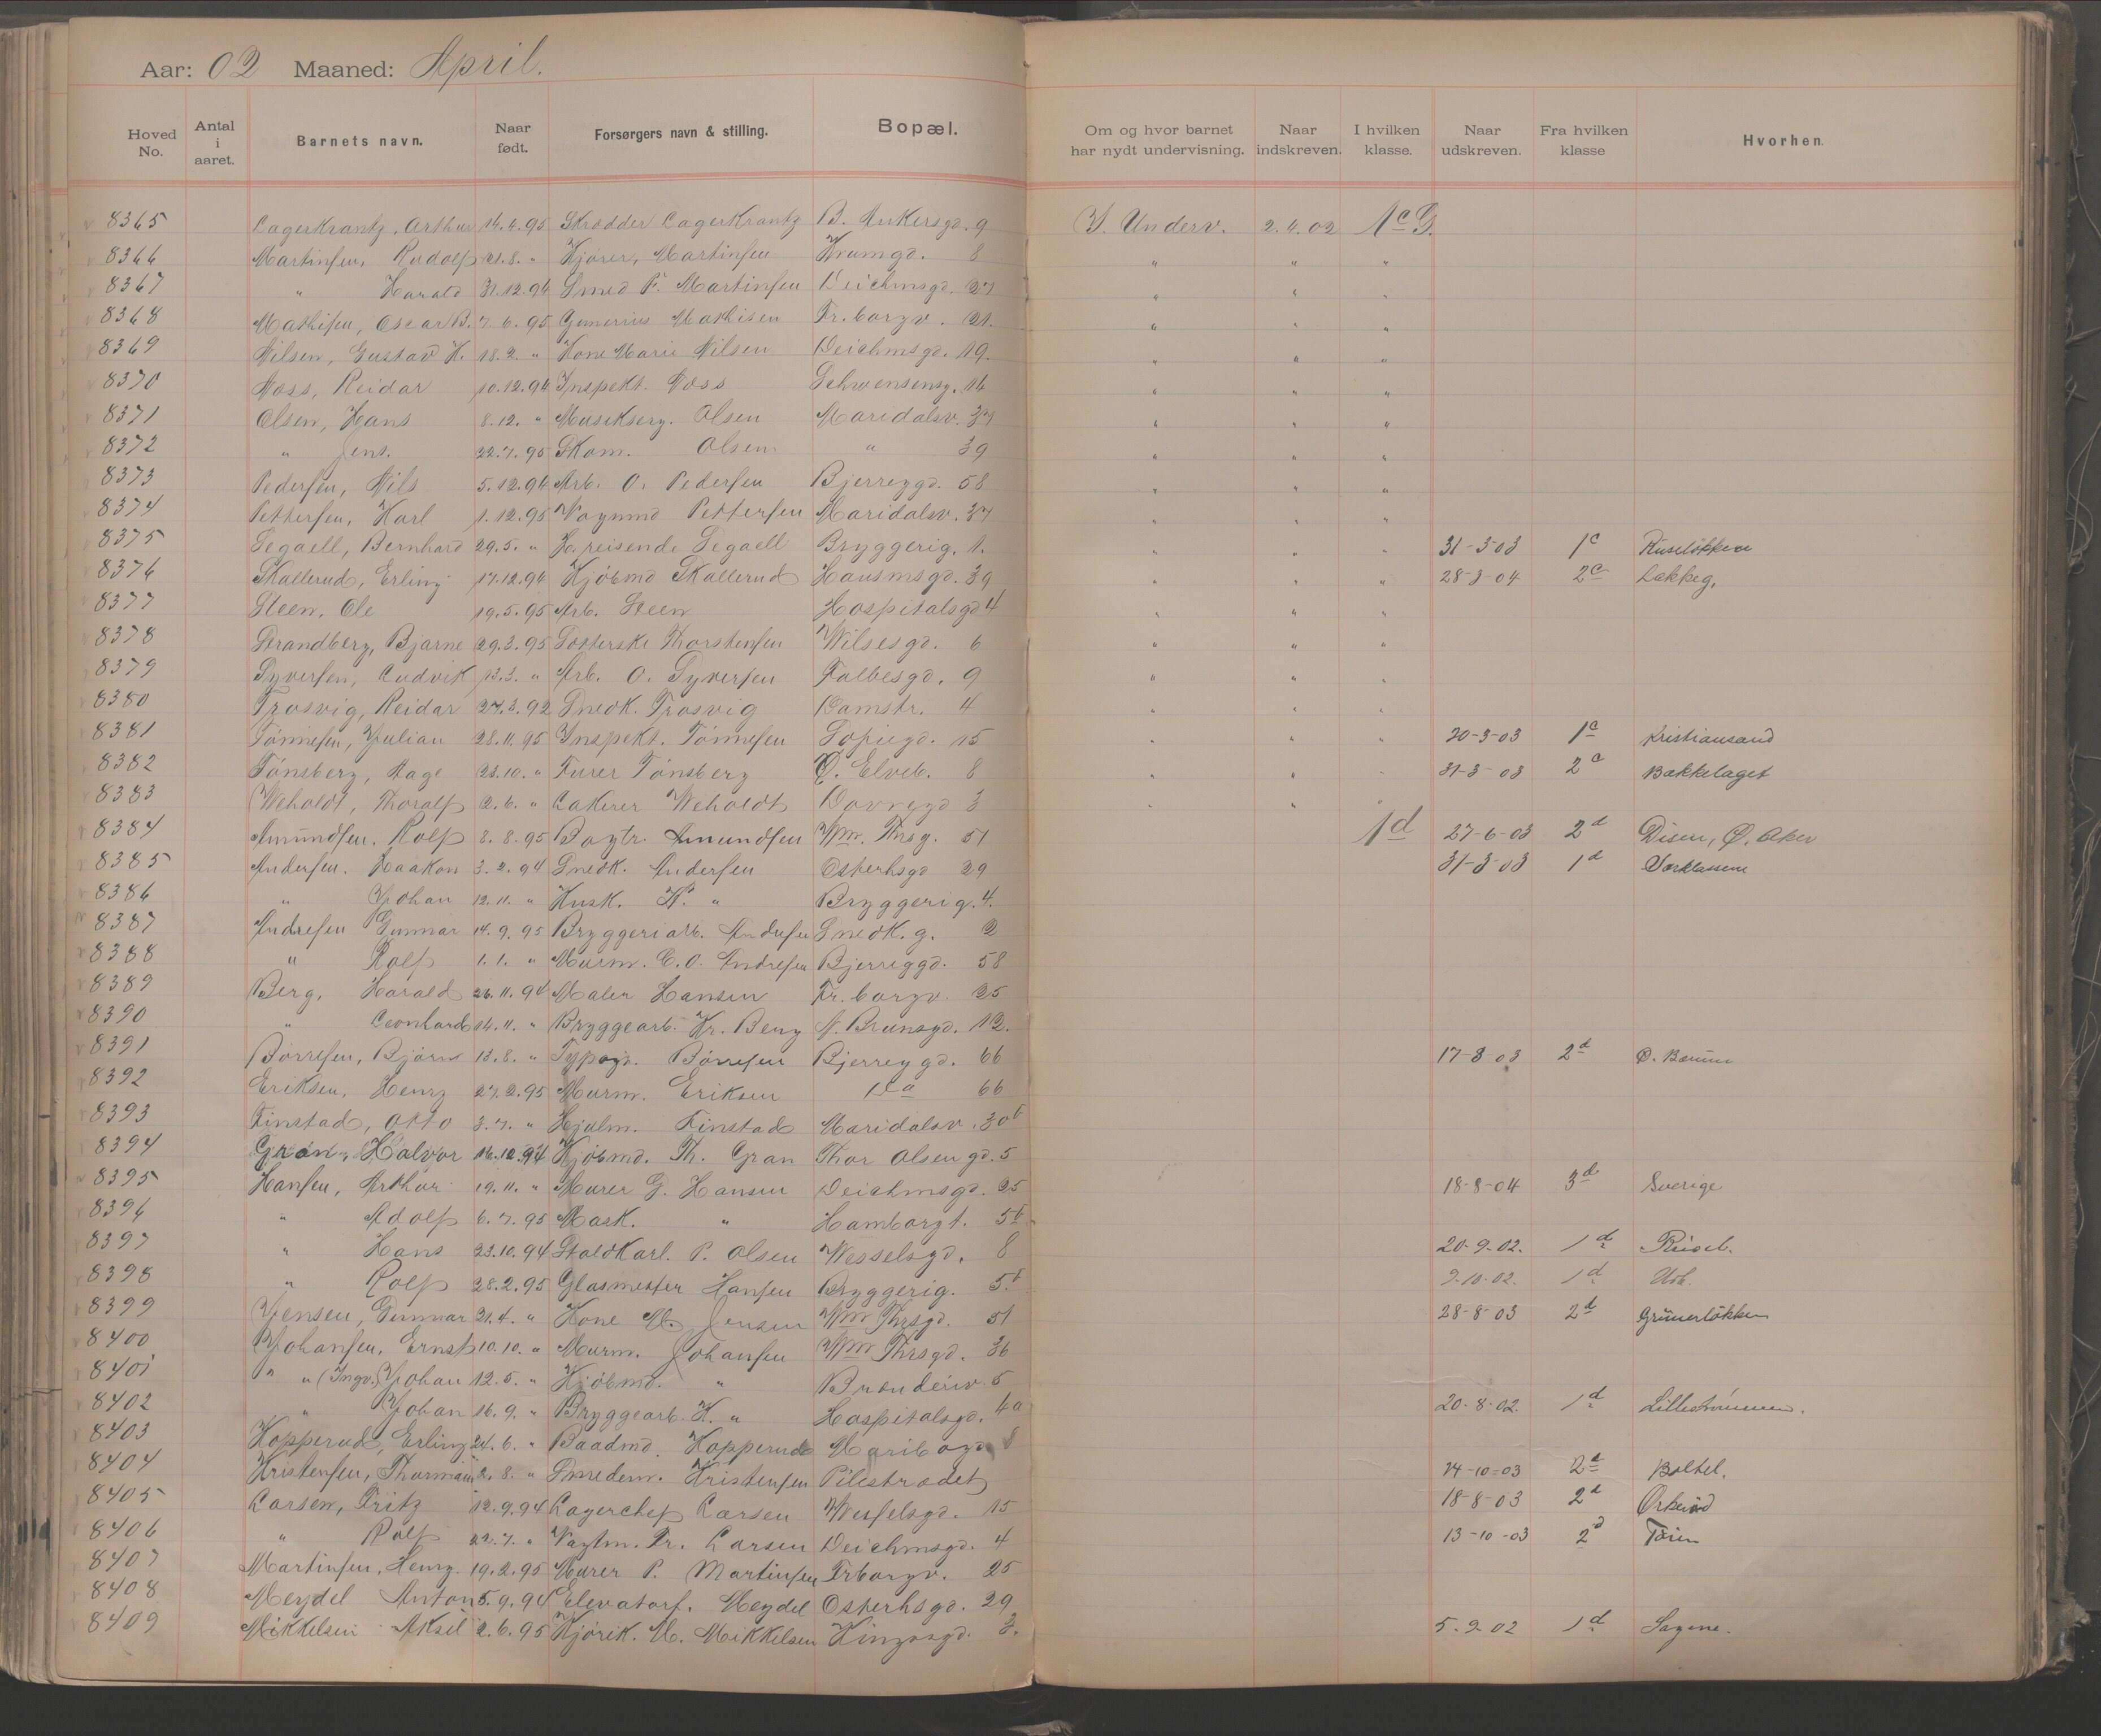 Aar: 02 Maaned: April.
Hoved No. Antal i aaret. Barnets navn. Naar født. Forsørgers navn & stilling. Bopæl. Om og hvor barnet har nydt undervisning. Naar indskreven. I hvilken klasse. Naar udskreven. Fra hvilken klasse Hvorhen.
8365 Lagerkrantz, Arthur 14.4.95 Skrædder Lagerkrantz B. Ankersgd. 9 I. Underv. 2.4.02 1c G.
8366 Martinsen, Rudolf 21.8. " Kjører, Martinsen Krumgd. 8 " " "
8367 " Harald 31.12.94 Smed F. Martinsen Deichmsgd. 27 " " "
8368 Mathisen, Oscar B. 7.6.95 Gunerius Mathisen Fr.borgv. 21. " " "
8369 Nilsen, Gustav H. 18.2. " Kone Marie Nilsen Deichmsgd. 19. " " "
8370 Næss, Reidar 10.12.94 Inspekt. Næss Schwensensg. 14 " " "
8371 Olsen, Hans 8.12. " Musikserg. Olsen Maridalsv. 37 " " "
8372 " Jens. 22.7.95 Skom. Olsen " 39 " " "
8373 Pedersen, Nils 5.12.94 Arb. O. Pedersen Bjerreggd. 58 " " "
8374 Pettersen, Karl 1.12.95 Vognmd Pettersen Maridalsv. 37 " " "
8375 Segaell, Bernhard 29.5. " H.reisende Segaell Bryggerig. 1. " " " 31-3-03 1c Ruseløkken
8376 Skallerud, Erling 17.12.94 Kjøbmd Skallerud Hausmsgd. 39 " " " 28-3-04 2c Lakkeg,
8377 Steen, Ole 19.5.95 Arb. Steen Hospitalsgd 4 " " "
8378 Strandberg, Bjarne 29.3.95 Thorstensen Wilsesgd. 6 " " "
8379 Syversen, Ludvik 13.3. " Arb. O. Syversen Falbesgd. 9 " " "
8380 Trosvig, Reidar 27.3.92 Snedk. Trosvig Damstr. 4 " " "
8381 Tønnesen, Julian 28.11.95 Inspekt. Tønnesen Sofiegd. 15 " " " 20-3-03 1c Kristiansand
8382 Tønsberg, Aage 23.10. " Furer Tønsberg Ø. Elveb. 8 " " " 31-3-03 2c Bakkelaget
8383 Weholdt, Thoralf 2.6. " Lakerer Weholdt Dovregd 3 " " "
8384 Amundsen, Rolf 8.8.95 Bogtr. Amundsen Wm. Thrsg. 51 1d 27-6-03 2d Disen, Ø. Aker
8385 Andersen, Haakon 3.2.94 Snedk. Andersen Osterhsgd 29 31-3-03 1d Særklassene
8386 " Johan 12.11. " Kusk. K. " Bryggerig. 4.
8387 Andresen Gunnar 14.9.95 Bryggeriarb. Andresen Snedk.g. 2
8388 " Rolf 1.1. " Murm. C.O. Andresen Bjerreggd. 58
8389 Berg, Harald 26.11.94 Maler Hansen Fr.borgv. 25
8390 " Leonhard 14.11. " Bryggearb. Kr. Berg N. Brunsgd. 12.
8391 Børresen, Bjørn 13.8. " Typogr. Børresen Bjerreggd. 66 17-8-03 2d Ø. Bærum
8392 Eriksen, Henry 27.2.95 Murm. Eriksen Do 66
8393 Finstad, Otto 3.7. " Hjulm. Finstad Maridalsv. 30b
8394 Gran, Halvor 16.12.94 Kjøbmd. Th. Gran Thor Olsengd. 5
8395 Hansen, Arthur 19.11. " Murer G. Hansen Deichmsgd. 25 18-8-04 3d Sverige
8396 " Adolf 6.7.95 Mask. " Hamborgt. 5b
8397 " Hans 23.10.94 Staldkarl. P. Olsen Wesselsgd. 8 20-9-02. 1d Rusel.
8398 " Rolf 28.2.95 Glasmester Hansen Bryggerig. 5b 9-10-02. 1d
8399 Jensen, Gunnar 31.4. " Kone M. Jensen Wm Thrsgd. 51 28-8-03 2d Grünerløkken
8400 Johansen, Ernst 10.10. " Murm. Johansen Wm Thrsgd. 36
8401 " " (Ingv.) Johan 12.5. " Kjøbmd. " Brænderiv. 5
8402 " Johan 16.9. " Bryggearb. K. " Hospitalsgd. 4a 20-8-02. 1d Lillestrømmen.
8403 Kopperud, Erling 24.6. " Baadmd. Kopperud Maribogd 8
8404 Kristensen, Thormann 2.8. " Smedem. Kristensen Pilestrædet 14-10-03 2d Bøltel.
8405 Larsen, Fritz 12.9.94 Lagerchef Larsen Wesselsgd. 15 18-8-03 2d
8406 " Rolf 22.7. " Vagtm. Fr. Larsen Deichmsgd. 4 13-10-03 2d Tøien
8407 Martinsen, Henry. 19.2.95 Murer P. Martinsen Frborgv. 25
8408 Meydel Anton 5.9.94 Elevatorf. Meydel Osterhsgd. 29
8409 Mikkelsen Aksil 2.6.95 Kjørik. M. Mikkelsen Kingosgd. 3. 5-9-02 1d Sagene.